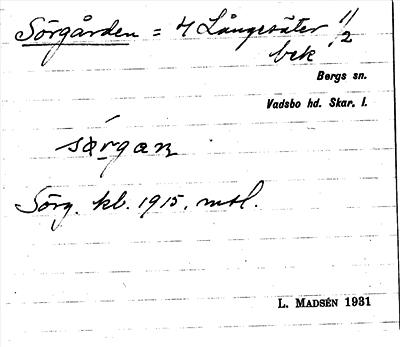 Sörgården = 4 Långesäter 1/2
bek.
Bergs sn.
Vadsbo hd. Skar. l.
sǿrgaɴ
Sörg. kl. 1915. mtl.
L. MADSÉN 1931